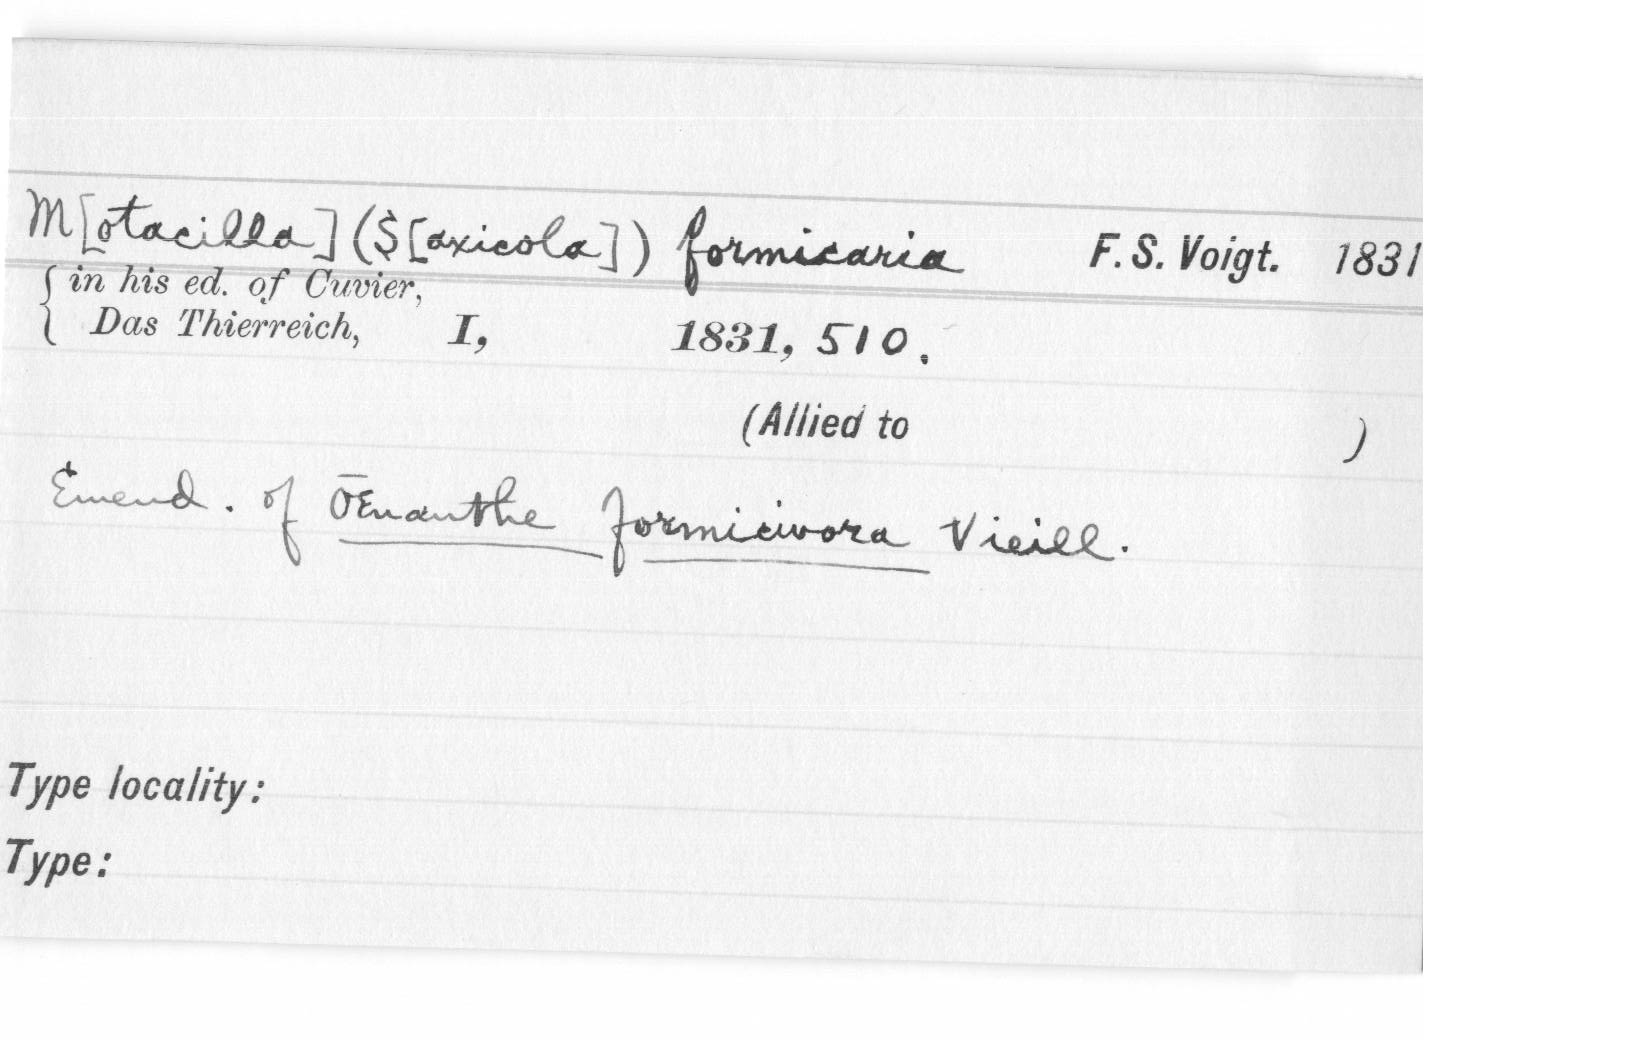 M[otacilla] (S[axicola]) formicaria F. S. Voigt. 1831
{ in his ed. of Cuvier,
{ Das Thierreich, I, 1831, 510.
(Allied to )
Emend. of Œnanthe formicivora Vieill.
Type locality:
Type: